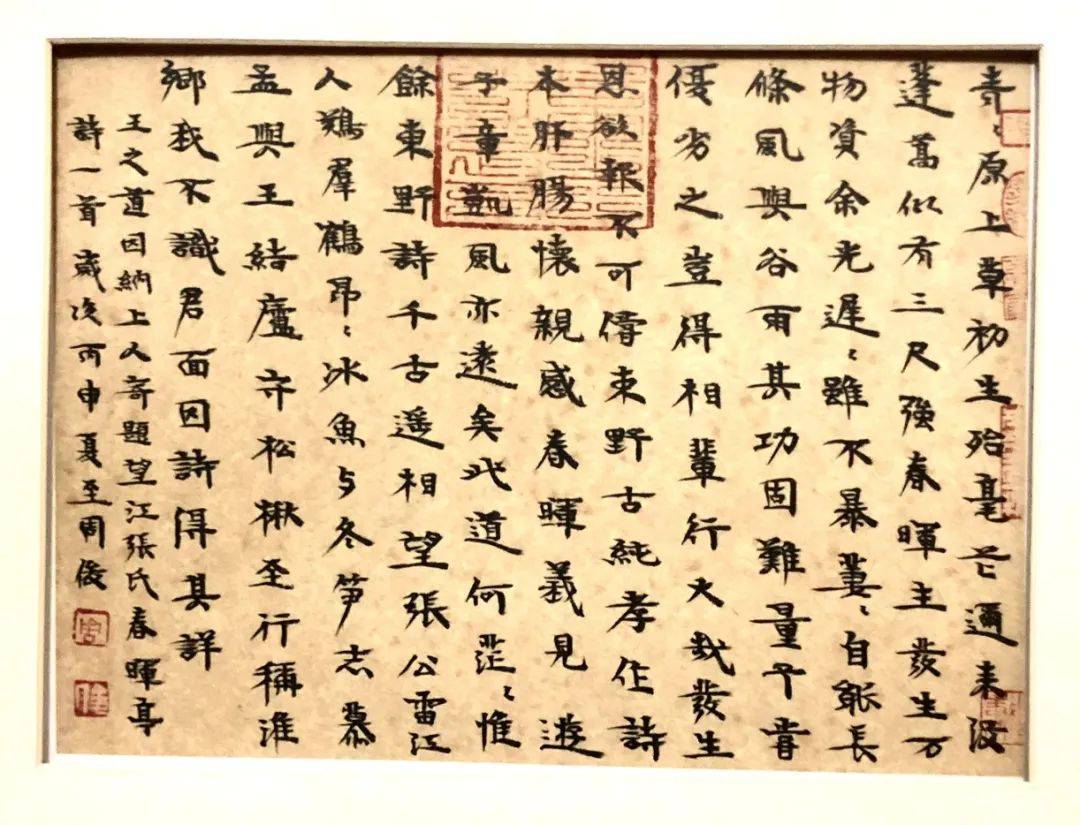 青〻原上草初生殆毫芒邇来沒
蓬蒿似有三尺強春暉主發生万
物資余光遲〻雖不暴萋〻自能長
條風與谷雨其功固難量予嘗
優劣之豈得相輩行大哉發生
恩欲報不可償東野古純孝作詩
本肝腸懷親感春暉義見遊
子章凱風亦遠矣此道何茫〻惟
餘東野詩千古遥相望張公雷江
人鷄羣鶴昂〻冰魚与冬笋志慕
孟與王結廬守松楸至行稱淮
鄉我不識君面因詩得其詳
王之道因納上人寄題望江張氏春暉亭
詩一首歲次丙申夏至周俊